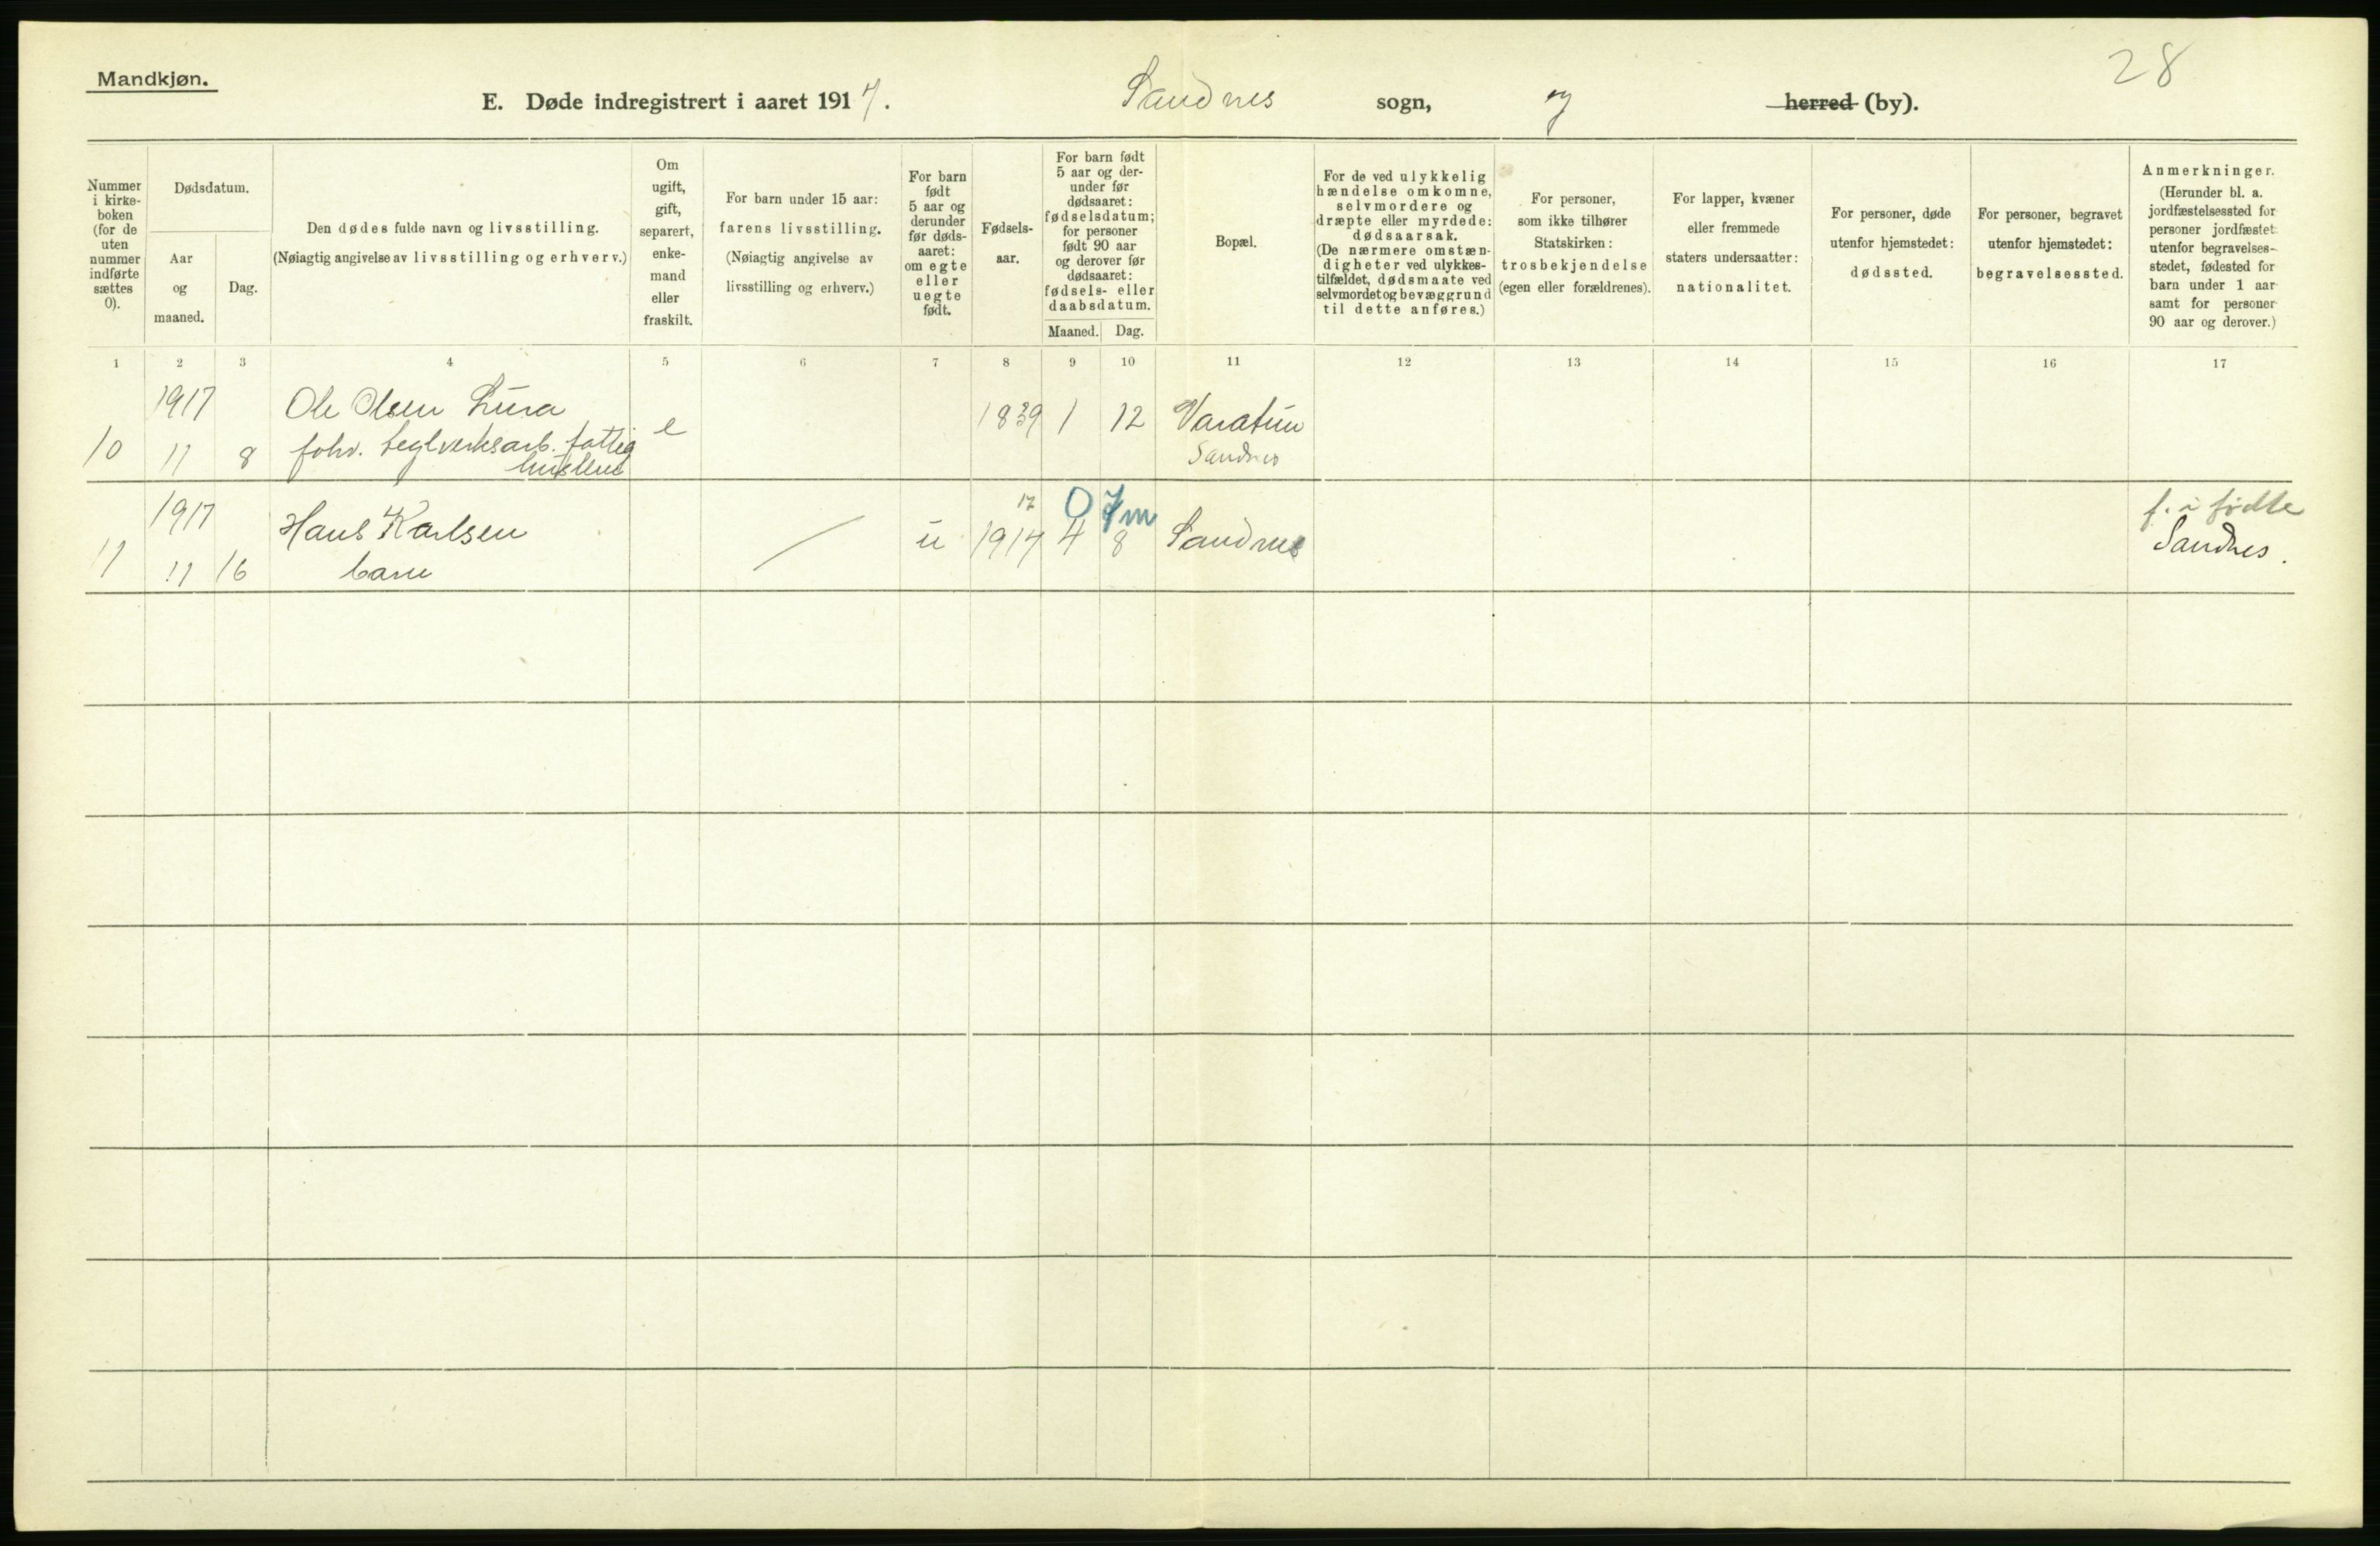 28
Mandkjøn.
E. Døde indregistrert i aaret 1917. Sandnes sogn, og herred (by).
Nummer
i kirke-
boken
(for de
uten
nummer
indførte
sættes
0).
Dødsdatum.
Aar
og
maaned.
Dag.
Den dødes fulde navn og livsstilling.
(Nøiagtig angivelse av livsstilling og erhverv.)
Om
ugift,
gift,
separert,
enke-
mand
eller
fraskilt.
For barn under 15 aar:
farens livsstilling.
(Nøiagtig angivelse av
livsstilling og erhverv.)
For barn
født
5 aar og
derunder
før døds-
aaret:
om egte
eller
uegte
født.
Fødsels-
aar.
For barn født
5 aar og der-
under før
dødsaaret:
fødselsdatum;
for personer
født 90 aar
og derover før
dødsaaret:
fødsels- eller
daabsdatum.
Maaned. Dag.
Bopæl.
For de ved ulykkelig
hændelse omkomne,
selvmordere og
dræpte eller myrdede:
dødsaarsak.
(De nærmere omstæn-
digheter ved ulykkes-
tilfældet, dødsmaate ved
selvmordet og bevæggrund
til dette anføres.)
For personer,
som ikke tilhører
Statskirken:
trosbekjendelse
(egen eller forældrenes).
For lapper, kvæner
eller fremmede
staters undersaatter:
nationalitet.
For personer, døde
utenfor hjemstedet:
dødssted.
For personer, begravet
utenfor hjemstedet:
begravelsessted.
Anmerkninger.
(Herunder bl. a.
jordfæstelsessted for
personer jordfæstet
utenfor begravelses-
stedet, fødested for
barn under 1 aar
samt for personer
90 aar og derover.)
1 2 3 4 5 6 7 8 9 10 11 12 13 14 15 16 17
1917 Ole Olsen Lura e 1839 1 12 Varatun
10 11 8 fohv. teglverksarb. fattig Sandnes
huslem
17 0 7m f. i fødte
1917 Hans Karlsen u 1917 4 8 Sandnes Sandnes.
11 11 16 barn